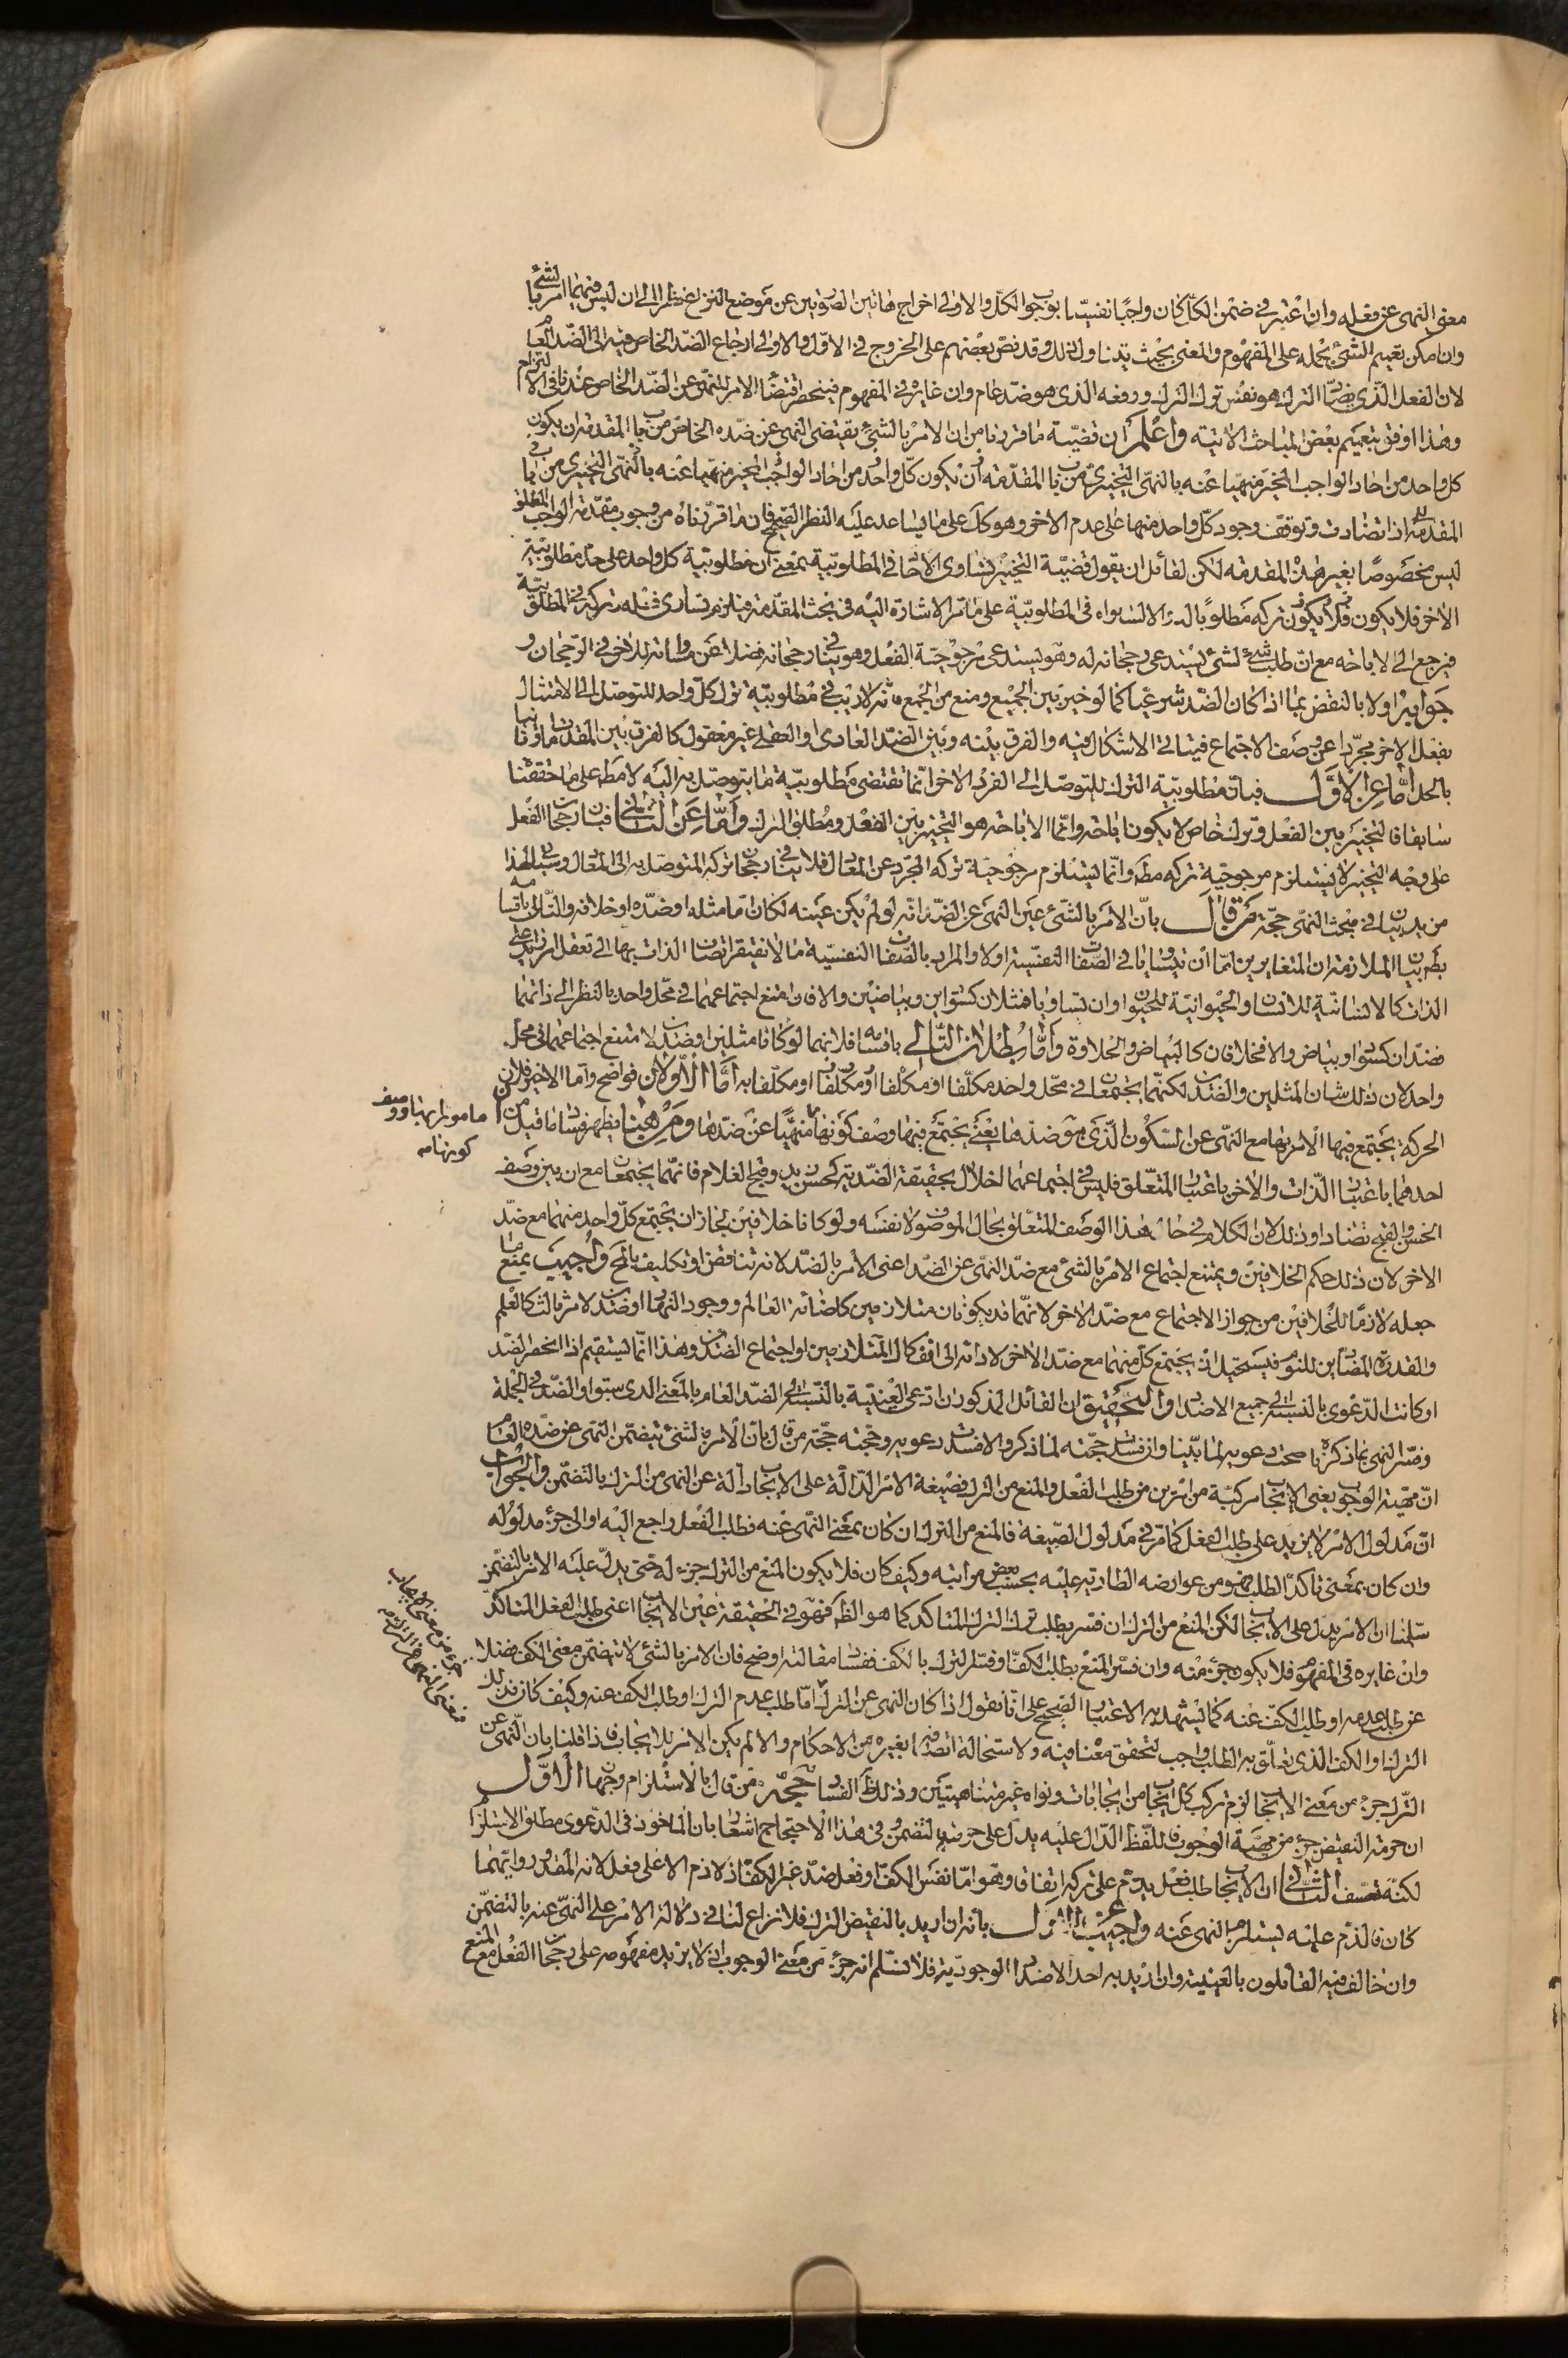 معنى النهى عن فعله وان اعتبر فى ضمن الكل كان واجبا نفسيا بوجوب الكل والاولى اخراج هاتين الصورتين عن موضع النزاع نظرا الى ان ليس فيهما امر بالشئ
وان امكن تعميم الشئ بحمله على المفهوم والمعنى بحيث يتناول ذلك وقد نص بعضهم على الخروج فى الاول والاولى ارجاع الضد الخاص فيه الى الضد العام
لان الفعل الذى يضاد الترك هو نفس ترك الترك ورفعه الذى هو ضد عام وان غايره فى المفهوم فينحصر اقتضاء الامر للنهى عن الضد الخاص عندنا فى الالتزام
وهذا اوفق بتعميم بعض المباحث الآتية واعلم ان قضية ما قررنا من ان الامر بالشئ يقتضى النهى عن ضده الخاص من باب المقدمة ان يكون
كل واحد من احاد الواجب المخير منهيا عنه بالنهى التخييرى من باب المقدمة ان يكون كل واحد من احاد الواجب المخير منهيا عنه بالنهى التخييرى من باب
المقدمة اذا تضادت وتوقف وجود كل واحد منها على عدم الاخر وهو كك على ما يساعد عليه النظر الصحيح فان ما قررناه من وجوب مقدمة الواجب المطلق
ليس مخصوصا بغير هذه المقدمة لكن لقائل ان يقول قضية التخيير تساوى الاحاد فى المطلوبية بمعنى ان مطلوبية كل واحد على حد مطلوبية
الاخر فلا يكون فلا يكون تركه مطلوبا له والا لتساواه فى المطلوبية على ما مر الاشارة اليه فى بحث المقدمة فيلزم تساوى فعله وتركه فى المطلوبية
فيرجع الى الاباحة مع ان طلب شئ لشئ يستدعى رجحانه له وهو يستدعى مرجوحية الفعل وهو ينافى رجحانه فضلا عن مساواته للاخر فى الرجحان و
جوابه اولا بالنقض بما اذا كان الضد شرعيا كما لو خير بين الجميع ومنع من الجمع فانه لا ريب فى مطلوبية ترك كل واحد للتوصل الى الامتثال
بفعل الاخر مجردا عن وصف الاجتماع فيتأتى الاشكال فيه والفرق بينه وبين الضد العادى او العقلى غير معقول كالفرق بين المقدمات وثانيا
بالحل اما عن الاول فبان مطلوبية الترك للتوصل الى الفرد الاخر انما تقتضى مطلوبية ما يتوصل به اليه لا مط على ما حققنا
سابقا فالتخيير بين الفعل وترك خاص لا يكون اباحة وانما الاباحة هو التخيير بين الفعل ومطلق الترك واما عن الثانى فبان رجحان الفعل
على وجه التخيير لا يستلزم مرجوحية تركه مط وانما يستلزم مرجوحية تركه المجرد عن المعادل فلا ينافى رجحان تركه المتوصل به الى المعادل وسيأتى لهذا
مزيد بيان فى مبحث النهى حجة من قال بان الامر بالشئ عين النهى عن الضد انه لو لم يكن عينه لكان اما مثله او ضده او خلافه والتالى باقسامه
بط بيان الملازمة ان المتغايرين اما ان يتساويا فى الصفات النفسية اولا والمراد بالصفات النفسية ما لا يفتقر اتصاف الذات بها الى تعقل امر زايد على
الذات كالانسانية للانسان والحيوانية للحيوان وان تساويا فمثلان كسوادين وبياضين والا فان امتنع اجتماعهما فى محل واحد بالنظر الى ذاتهما
فضدان كسواد وبياض والا فخلافان كالبياض والحلاوة واما بطلان التالى باقسامه فلانهما لو كانا مثلين او ضدين لامتنع اجتماعهما فى محل
واحد لان ذلك شان المثلين والضدين لكنهما يجتمعان فى محل واحد مكلفا او مكلفا او مكلفا به اما الاولان فواضح واما الاخير فلان
الحركة يجتمع فيها الامر بها مع النهى عن السكون الذى هو ضدها يعنى يجتمع فيها وصف كونها منهيا عن ضدها ومن هيهنا يظهر فساد ما قيل من ان
مامورا بها ووصف
كونها
احدهما باعتبار الذات والاخر باعتبار المتعلق فليس فى اجتماعهما اخلال بحقيقة الضدية كحسن زيد وقبح الغلام فانهما يجتمعان مع ان بين وصف
الحسن والقبح تضادا وذلك لان الكلام فى حال هذا الوصف المتعلق بحال الموصوف لا نفسه ولو كانا خلافين لجاز ان يجتمع كل واحد منهما مع ضد
الاخر لان ذلك حكم الخلافين ويمتنع اجتماع الامر بالشئ مع ضد النهى عن الضد اعنى الامر بالضد لانه تناقض او تكليف بالمح واجيب بمنع ما
جعله لازما للخلافين من جواز الاجتماع مع ضد الاخر لانهما قد يكونان متلازمين كاضائة العالم ووجود النهار او ضدين لامر ثالث كالعلم
والقدرة المضادين للنوم فيستحيل ان يجتمع كل منهما مع ضد الاخر لادائه الى انفكاك المتلازمين او اجتماع الضدين وهذا انما يستقيم اذا انحصر الضد
او كانت الدعوى بالنسبة الى جميع الاضداد والتحقيق ان القائل المذكور ان ادعى العينية بالنسبة الى الضد العام بالمعنى الذى سبق او الضد فى الجملة
وفسر النهى بما ذكره يا صحت دعويه لما بينا وان فسدت حجته لما ذكر والا فسدت دعويه وحجته حجة من قال بان الامر بالشئ يتضمن النهى عن ضده العام
ان مهية الوجوب يعنى الايجاب مركبة من امرين من طلب الفعل والمنع من الترك فصيغة الامر الدالة على الايجاب دالة عن النهى من الترك بالتضمن والجواب
ان مدلول الامر لا يزيد على طلب الفعل كما مر فى مدلول الصيغة فالمنع من الترك ان كان بمعنى النهى عنه فطلب الفعل راجع اليه او الى جزء مدلوله
وان كان بمعنى تاكد الطلب فهو من عوارضه الطارية عليه بحسب بعض مراتبه وكيف كان فلا يكون المنع من الترك جزء له حتى يدل عليه الامر بالتضمن
سلمنا ان الامر يدل على الايجاب لكن المنع من الترك ان فسر بطلب ترك الترك المتاكد كما هو الظ فهو فى الحقيقة عين الايجاب اعنى طلب الفعل المتاكد
وان غايره فى المفهوم فلا يكون جزء منه وان فسر المنع بطلب الكف او فسر الترك بالكف ففساد مقالته اوضح فان الامر بالشئ لا يتضمن معنى الكف فضلا
عن طلب عدمه او طلب الكف عنه كما يشهد به الاعتبار الصحيح على انا نقول اذا كان النهى عن الترك اما طلب عدم الترك او طلب الكف عنه وكيف كان فذلك
الترك او الكف الذى يتعلق به الطلب واجب لتحقق معناه فيه ولاستحالة اتصافه بغيره من الاحكام والا لم يكن الامر للايجاب فاذا قلنا بان النهى عن
الترك جزء من معنى الايجاب لزم تركب كل ايجاب من ايجابات ونواه غير متناهيتين وذلك ظ الفساد حجة من قال بالاستلزام وجهان الاول
ان حرمة النقيض جزء من مهية الوجوب فاللفظ الدال عليه يدل على حرمته بالتضمن وفى هذا الاحتجاج اشعار بان الماخوذ فى الدعوى مطلق الاستلزام
لكنه تعسف الثانى ان الايجاب طلب فعل يذم على تركه اتفاقا وهو اما نفس الكف او فعل ضد غير الكف اذ لا ذم الا على فعل لانه المقدور وايهما
كان فالذم عليه يستلزم النهى عنه واجيب عن الاول بانه ان اريد بالنقيض الترك فلا نزاع لنا فى دلالة الامر على النهى عنه بالتضمن
وان خالف فيه القائلون بالعينية وان اريد به احد الاضداد الوجودية فلا نسلم انه جزء من معنى الوجوب اذ لا يزيد مفهومه على رجحان الفعل مع المنع